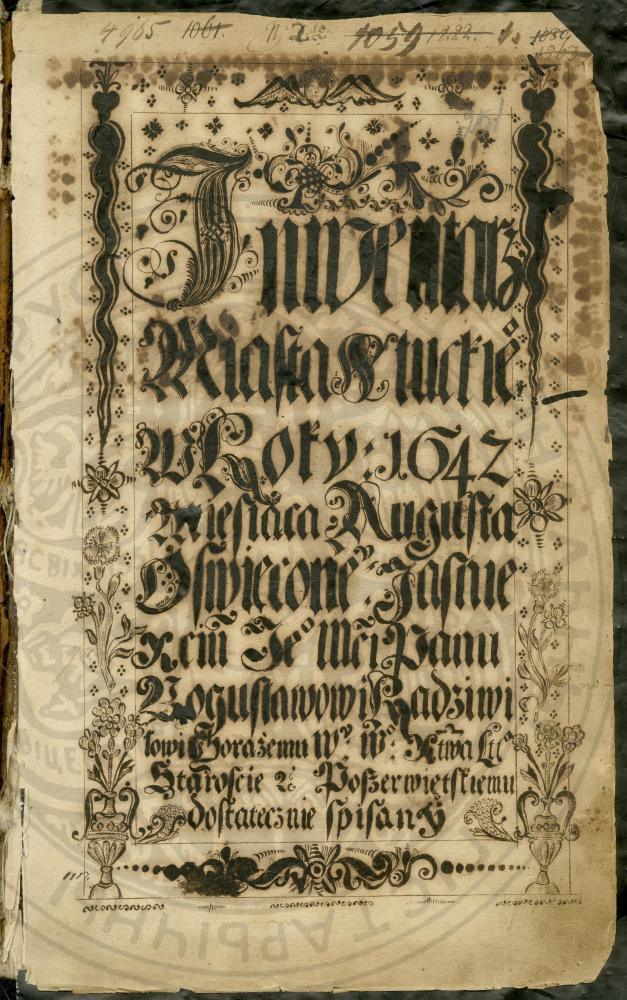 4965 1061. N 2do 1059 1222. 1. 1080
Inwentarz
Miasta Słuckie̊
w Roku: 1642
Miesiąca Augusta
Oświęcone̊ᵛ Jaśnie
Xciu̅ Je̊ Mci Panu
Bogusławowi Radziwi
łowi Chorążemu W̊ W̊: Xtwa Litᵒ
Staroście &c Poszerwiętskiemu
dostatecznie spisany